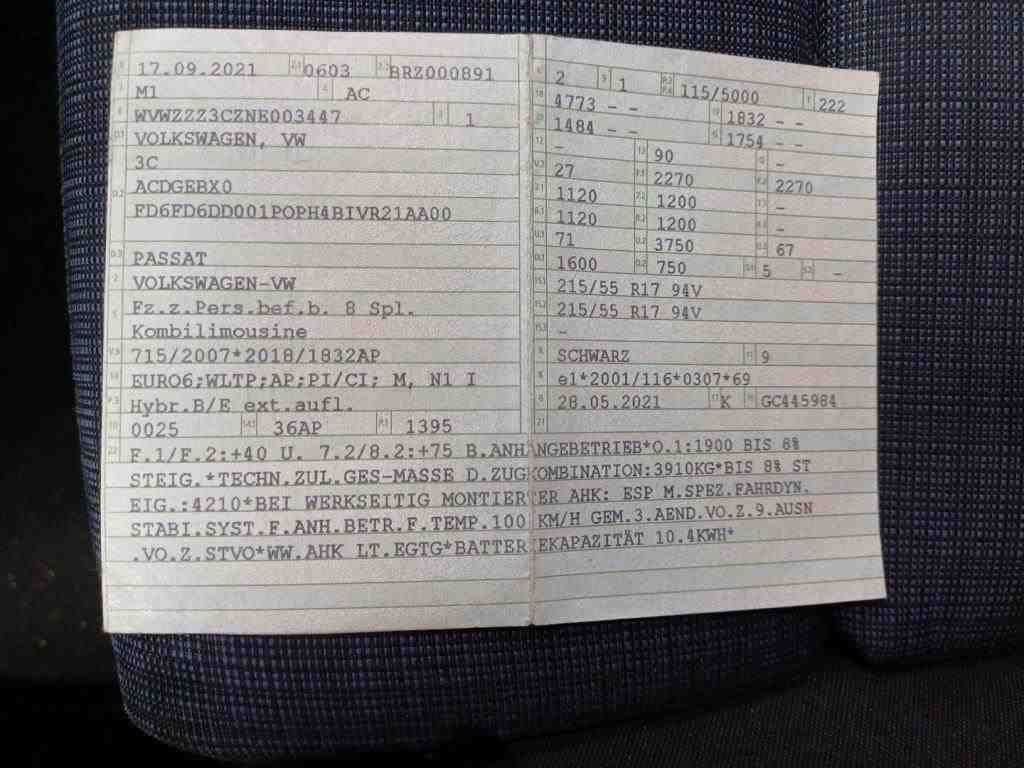 17.09.2021 0603 BRZ000891
M1 AC
WVWZZZ3CZNE003447 1
VOLKSWAGEN, VW
3C
ACDGEBX0
FD6FD6DD001POPH4BIVR21AA00
PASSAT
VOLKSWAGEN-VW
Fz.z.Pers.bef.b. 8 Spl.
Kombilimousine
715/2007*2018/1832AP
EURO6;WLTP;AP;PI/CI; M, N1 I
Hybr.B/E ext.aufl.
0025 36AP 1395
2 1 115/5000 222
4773 - - 1832 - -
1484 - - 1754 - -
- 90 -
27 2270 2270
1120 1200 -
1120 1200 -
71 3750 67
1600 750 5 -
215/55 R17 94V
215/55 R17 94V
-
SCHWARZ 9
e1*2001/116*0307*69
28.05.2021 K GC445984
F.1/F.2:+40 U. 7.2/8.2:+75 B.ANHÄNGEBETRIEB*O.1:1900 BIS 8%
STEIG.*TECHN.ZUL.GES-MASSE D.ZUGKOMBINATION:3910KG*BIS 8% ST
EIG.:4210*BEI WERKSEITIG MONTIERTER AHK: ESP M.SPEZ.FAHRDYN.
STABI.SYST.F.ANH.BETR.F.TEMP.100 KM/H GEM.3.AEND.VO.Z.9.AUSN
.VO.Z.STVO*WW.AHK LT.EGTG*BATTERIEKAPAZITÄT 10.4KWH*